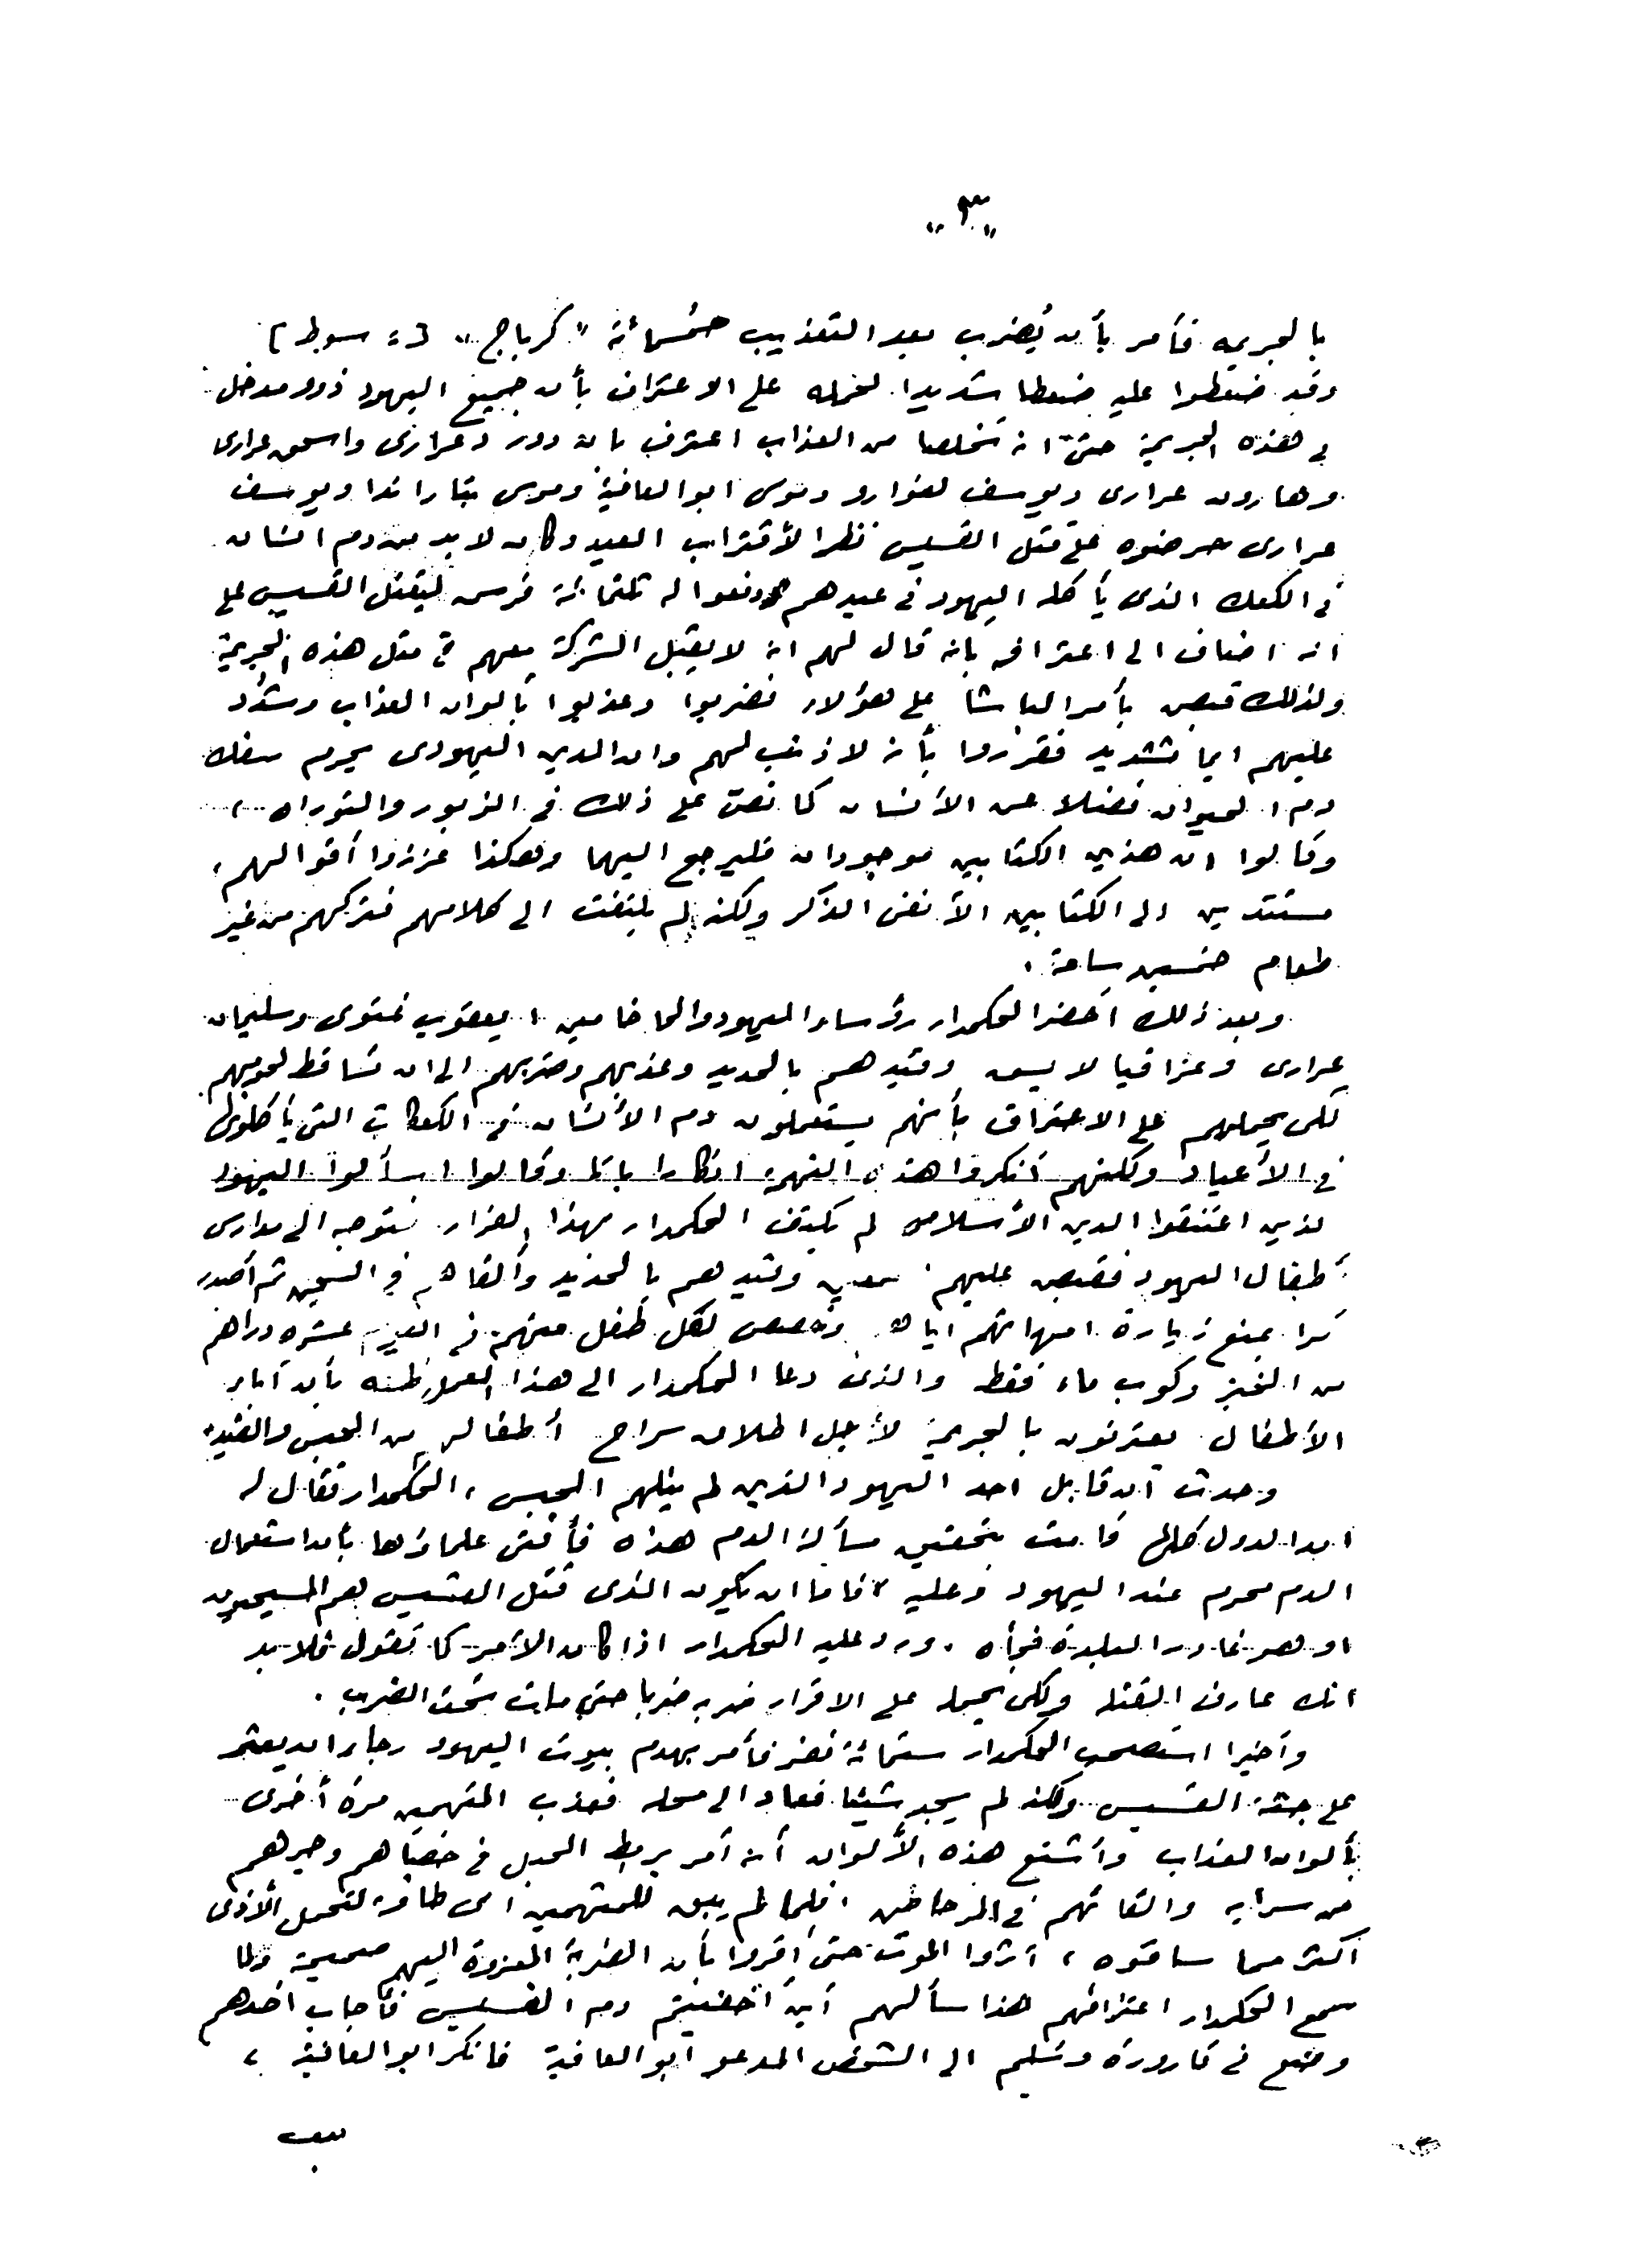 "٣"
بالجريمه فأمر بأن يُضرب بعد التعذيب خمسمائة "كرباج" (= سوط)
وقد ضغطوا عليه ضغطا شديدا لحمله على الاعتراف بأن جميع اليهود ذوو مدخل
في هذه الجريمة حتى انه تخلصا من العذاب اعترف بان دور دعرارى واسحق عرارى
وهارون عرارى ويوسف لغوارو وموسى ابو العافية وموسى بتاراندا ويوسف
عرارى حرضوه على قتل القسيس نظرا لأقتراب العيد وكان لا بد من دم انسان
فى الكعك الذى يأكله اليهود فى عيدهم ودفعوا له ثلثمائة قرش ليقتل القسيس على
انه اضاف الى اعترافه بانه قال لهم انه لا يقبل الشركة معهم فى مثل هذه الجريمة
ولذلك قبض بأمر الباشا على هؤلاء فضربوا وعذبوا بألوان العذاب وشدد
عليهم ايما تشديد فقرروا بأنه لا ذنب لهم وان الدين اليهودى يحرم سفك
دم الحيوان فضلا عن الأنسان كما نص على ذلك فى الزبور والتوراه،
وقالوا ان هذين الكتابين موجودان فليرجع اليهما وهكذا عززوا أقوالهم،
مستندين الى الكتابين الآنفى الذكر ولكنه لم يلتفت الى كلامهم فتركهم من غير
طعام خمسين ساعة.
وبعد ذلك أحضر الحكمدار رؤساء اليهود والحاخامين، يعقوب عنتوى وسليمان
عرارى وعزاقيا لا يسى وقيدهم بالحديد وعذبهم وضربهم الى ان تساقط لحومهم
لكى يحملهم على الاعتراف بأنهم يستعملون دم الأنسان فى الكعكات التى يأكلونها
فى الأعياد ولكنهم أنكروا هذه التهمة انكارا باتا وقالوا اسألوا اليهود
لذين اعتنقوا الدين الأسلامى لم يكتف الحكمدار بهذا القرار فتوجه الى مدارس
أطفال اليهود فقبض عليهم وقيدهم بالحديد وألقاهم فى السجن ثم أصدر
أمرا بمنع زيارة امهاتهم اياهم وخصص لكل طفل منهم فى اليوم عشره دراهم
من الخبز وكوب ماء فقط والذى دعا الحكمدار الى هذا العمل ظنه بأن آباء
الأطفال يعترفون بالجريمة لأجل اطلاق سراح أطفالهم من الحبس والقيد.
وحدث أن قابل احد اليهود الذين لم ينلهم الحبس، الحكمدار فقال له
ان الدول كلها قامت بتحقيق مسألة الدم هذه فأفتى علماؤها بأن استعمال
الدم محرم عند اليهود وعليه فاما ان يكون الذى قتل القسيس هم المسيحيون
او هو غادر البلدة فجأه. ورد عليه الحكمدار اذا كان الأمر كما تقول فلا بد
انك عارف القتله ولكى يحمله على الاقرار ضربه ضربا حتى مات تحت الضرب.
وأخيرا استصحب الحكمدار ستمائة نفر فأمر بهدم بيوت اليهود رجاء ان يعثر
على جثة القسيس ولكنه لم يجد شيئا فعاد الى محله فعذب المتهمين مرة أخرى
بألوان العذاب وأشنع هذه الألوان أنه أمر بربط الحبل فى خصاهم وجرهم
من سرايه والقائهم فى المرحاض، فلما لم يبق للمتهمين اى طاقة لتحمل الأذى
أكثر مما ساقوه، آثروا الموت حتى أقروا بأن الفرية المعزوة اليهم صحيحة ولما
سمع الحكمدار اعترافهم هذا سألهم أين أخفيتم دم القسيس فأجاب أحدهم
وضع فى قارورة وسُليم الى الشخص المدعو ابو العافية فانكر ابو العافية،